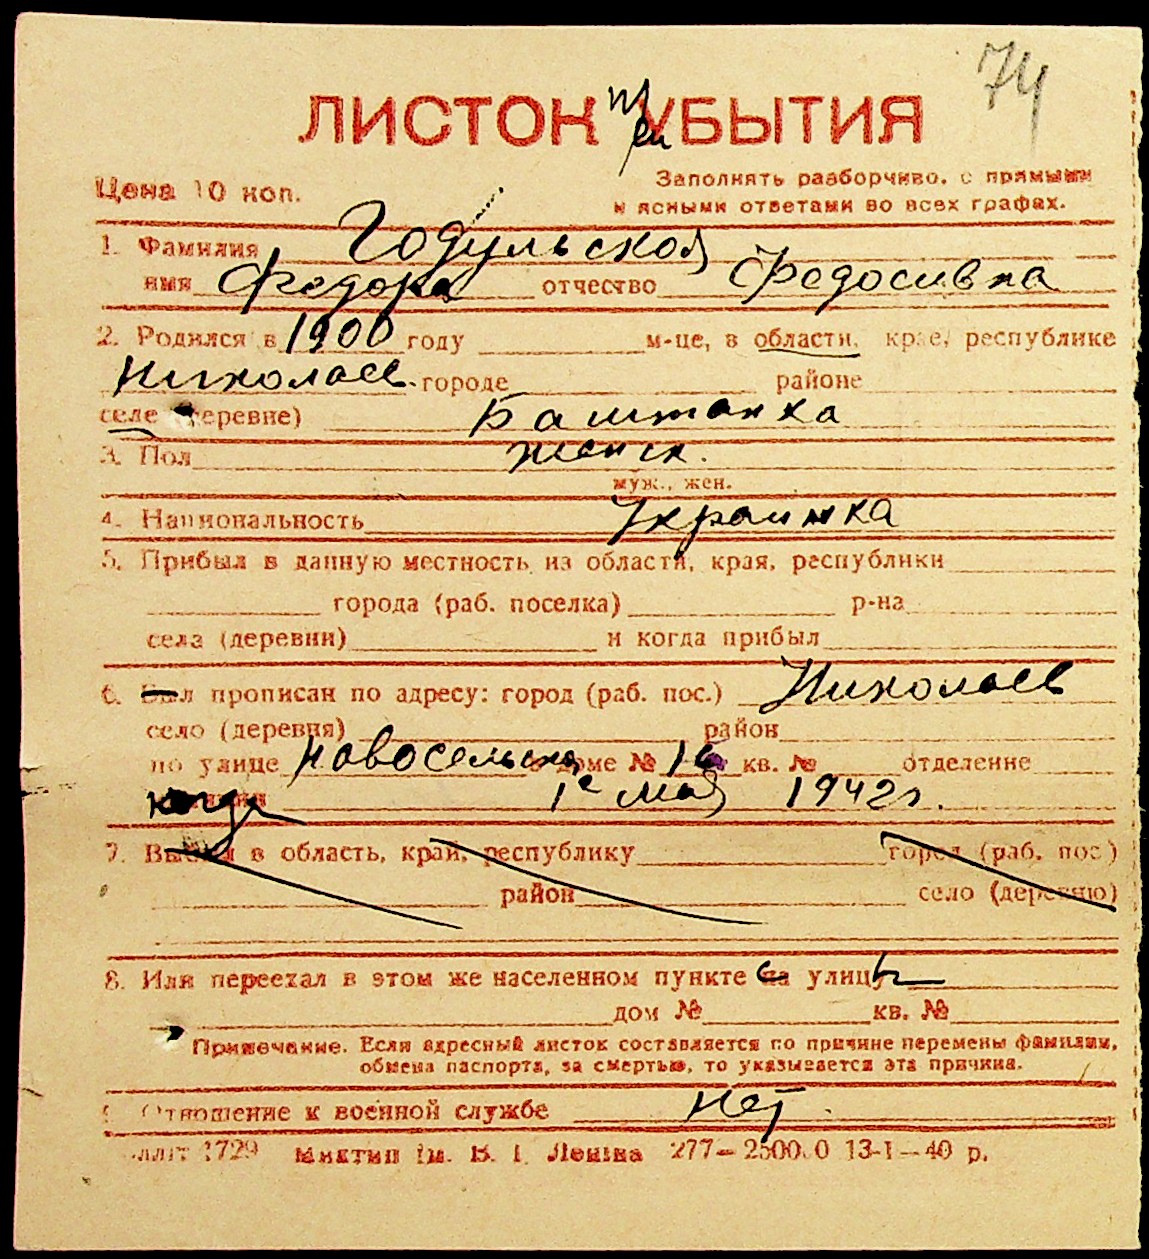 74
ЛИСТОК при УБЫТИЯ
Цена 10 коп.
Заполнять разборчиво, с прямыми
и ясными ответами во всех графах.
1. Фамилия Годульская
имя Федора отчество Федосивна
2. Родился в 1900 году м-це, в области, крае, республике
Николаев. городе районе
селе (деревне) Баштанка
3. Пол женск.
муж., жен.
4. Национальность Украинка
5. Прибыл в данную местность из области, края, республики
города (раб. поселка) р-на
села (деревни) и когда прибыл
6. Был прописан по адресу: город (раб. пос.) Николаев
село (деревня) район
по улице Новосельская в доме № 16 кв. № отделение
когда 1е мая 1942 г.
7. Выбыл в область, край, республику город (раб. пос.)
район село (деревню)
8. Или переехал в этом же населенном пункте с на улицы
дом № кв. №
Примечание. Если адресный листок составляется по причине перемены фамилии,
обмена паспорта, за смертью, то указывается эта причина.
9. Отношение к военной службе Нет
лліт 1729 Миктип ім. В. І. Леніна 277— 2500.0 13-I—40 р.